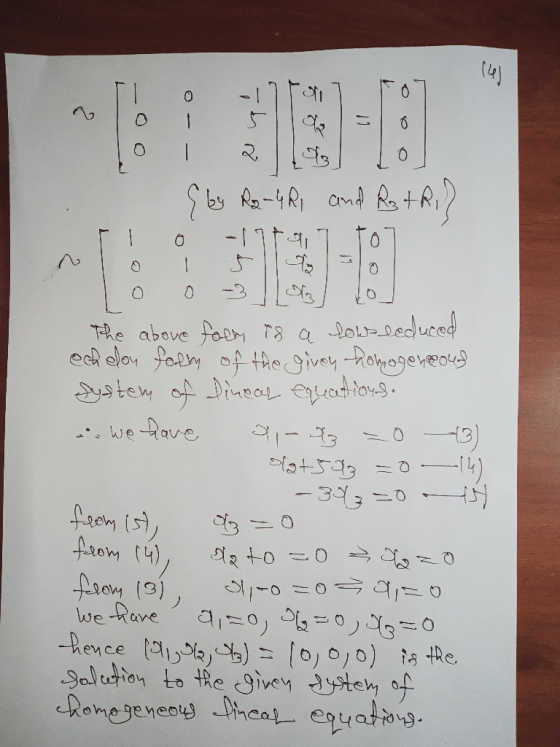 (4)
~ [1 0 -1; 0 1 5; 0 1 2] [x1; x2; x3] = [0; 0; 0]
{by R2-4R1 and R3+R1}
~ [1 0 -1; 0 1 5; 0 0 -3] [x1; x2; x3] = [0; 0; 0]
The above form is a row-reduced
echelon form of the given homogeneous
system of linear equations.
∴ we have x1 - x3 = 0 —(3)
x2+5x3 = 0 —(4)
-3x3 = 0 —(5)
from (5), x3 = 0
from (4), x2 + 0 = 0 ⇒ x2 = 0
from (3), x1 - 0 = 0 ⇒ x1 = 0
we have x1=0, x2=0, x3=0
hence (x1, x2, x3) = (0, 0, 0) is the
solution to the given system of
homogeneous linear equations.